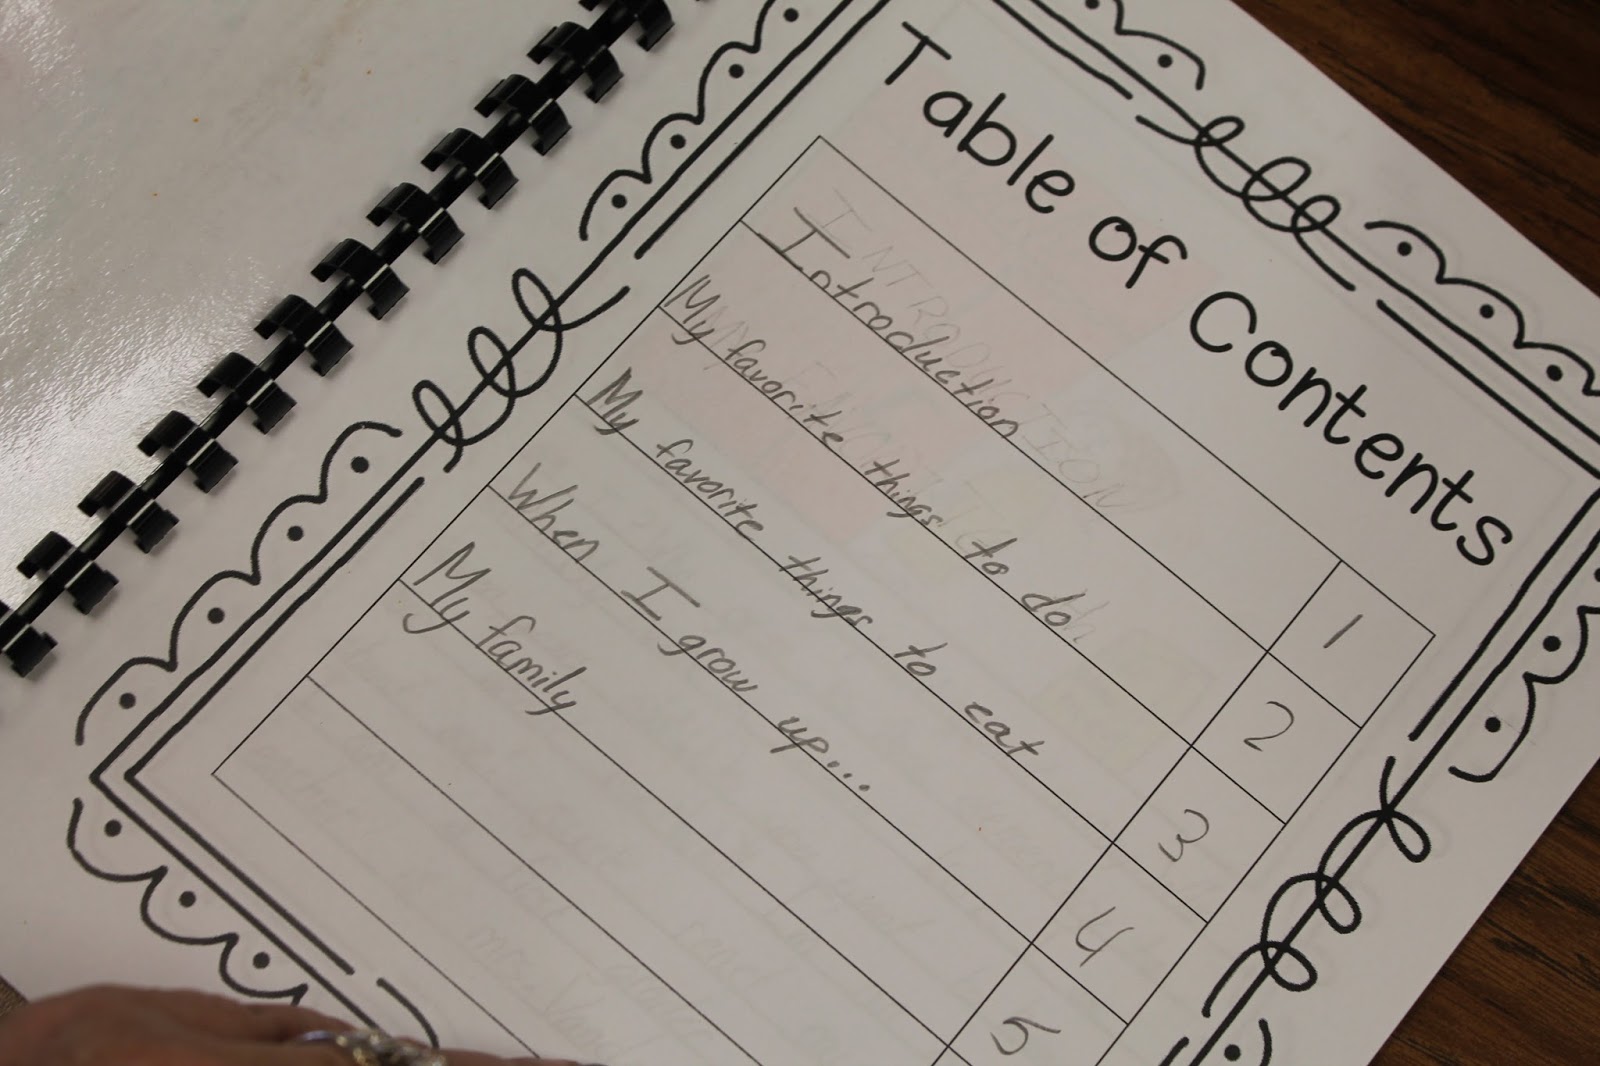 Table of Contents
Introduction 1
My favorite things to do 2
My favorite things to eat 3
When I grow up... 4
My family 5